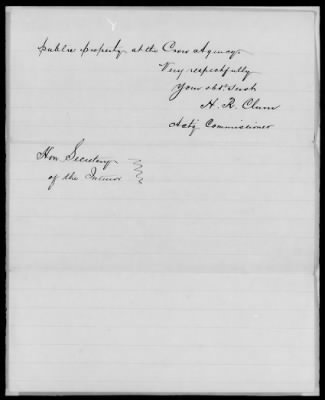 public property at the Crow Agency.
Very respectfully
Your obt. Servt
H. R. Clum
Actg Commissioner
Hon. Secretary
of the Interior